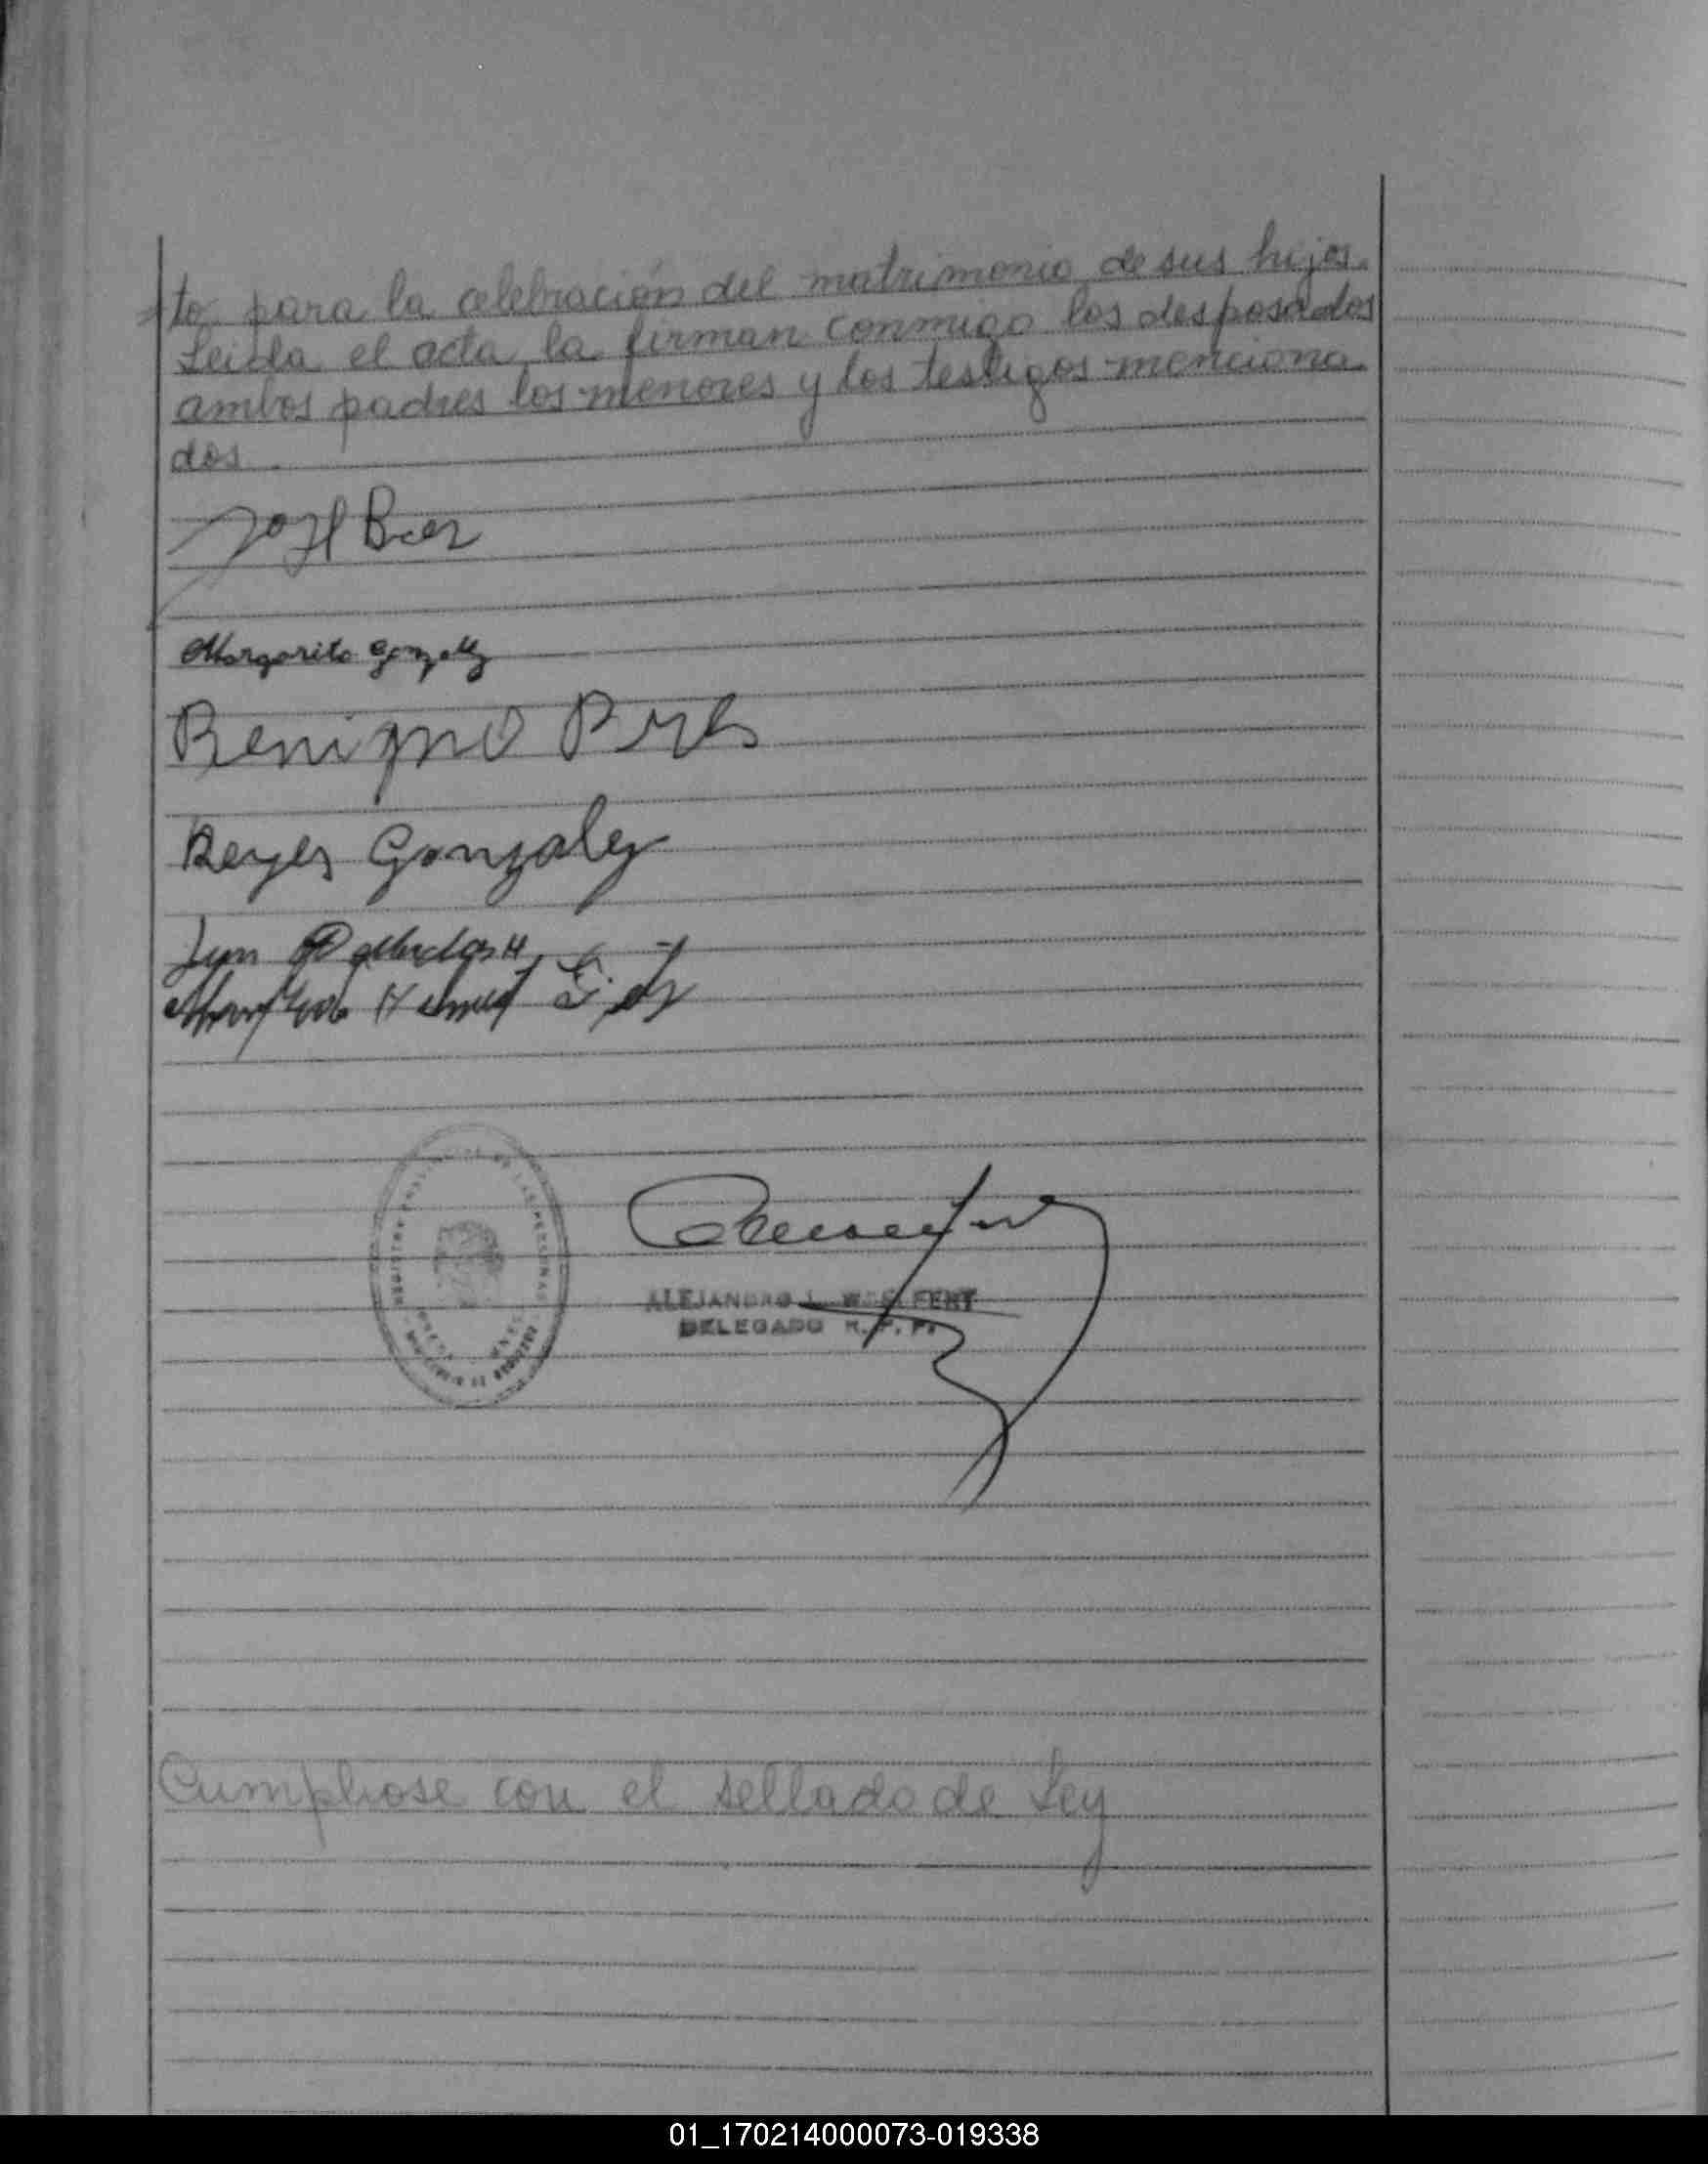 to para la celebración del matrimonio de sus hijos.
Leida el acta la firman conmigo los desposados
ambos padres los menores y los testigos menciona
dos.
Margarita Gonzalez
Benigno
Reyes Gonzalez
ALEJANDRO L. WOELFERT
DELEGADO R. P. P.
Cumpliose con el sellado de Ley
01_170214000073-019338